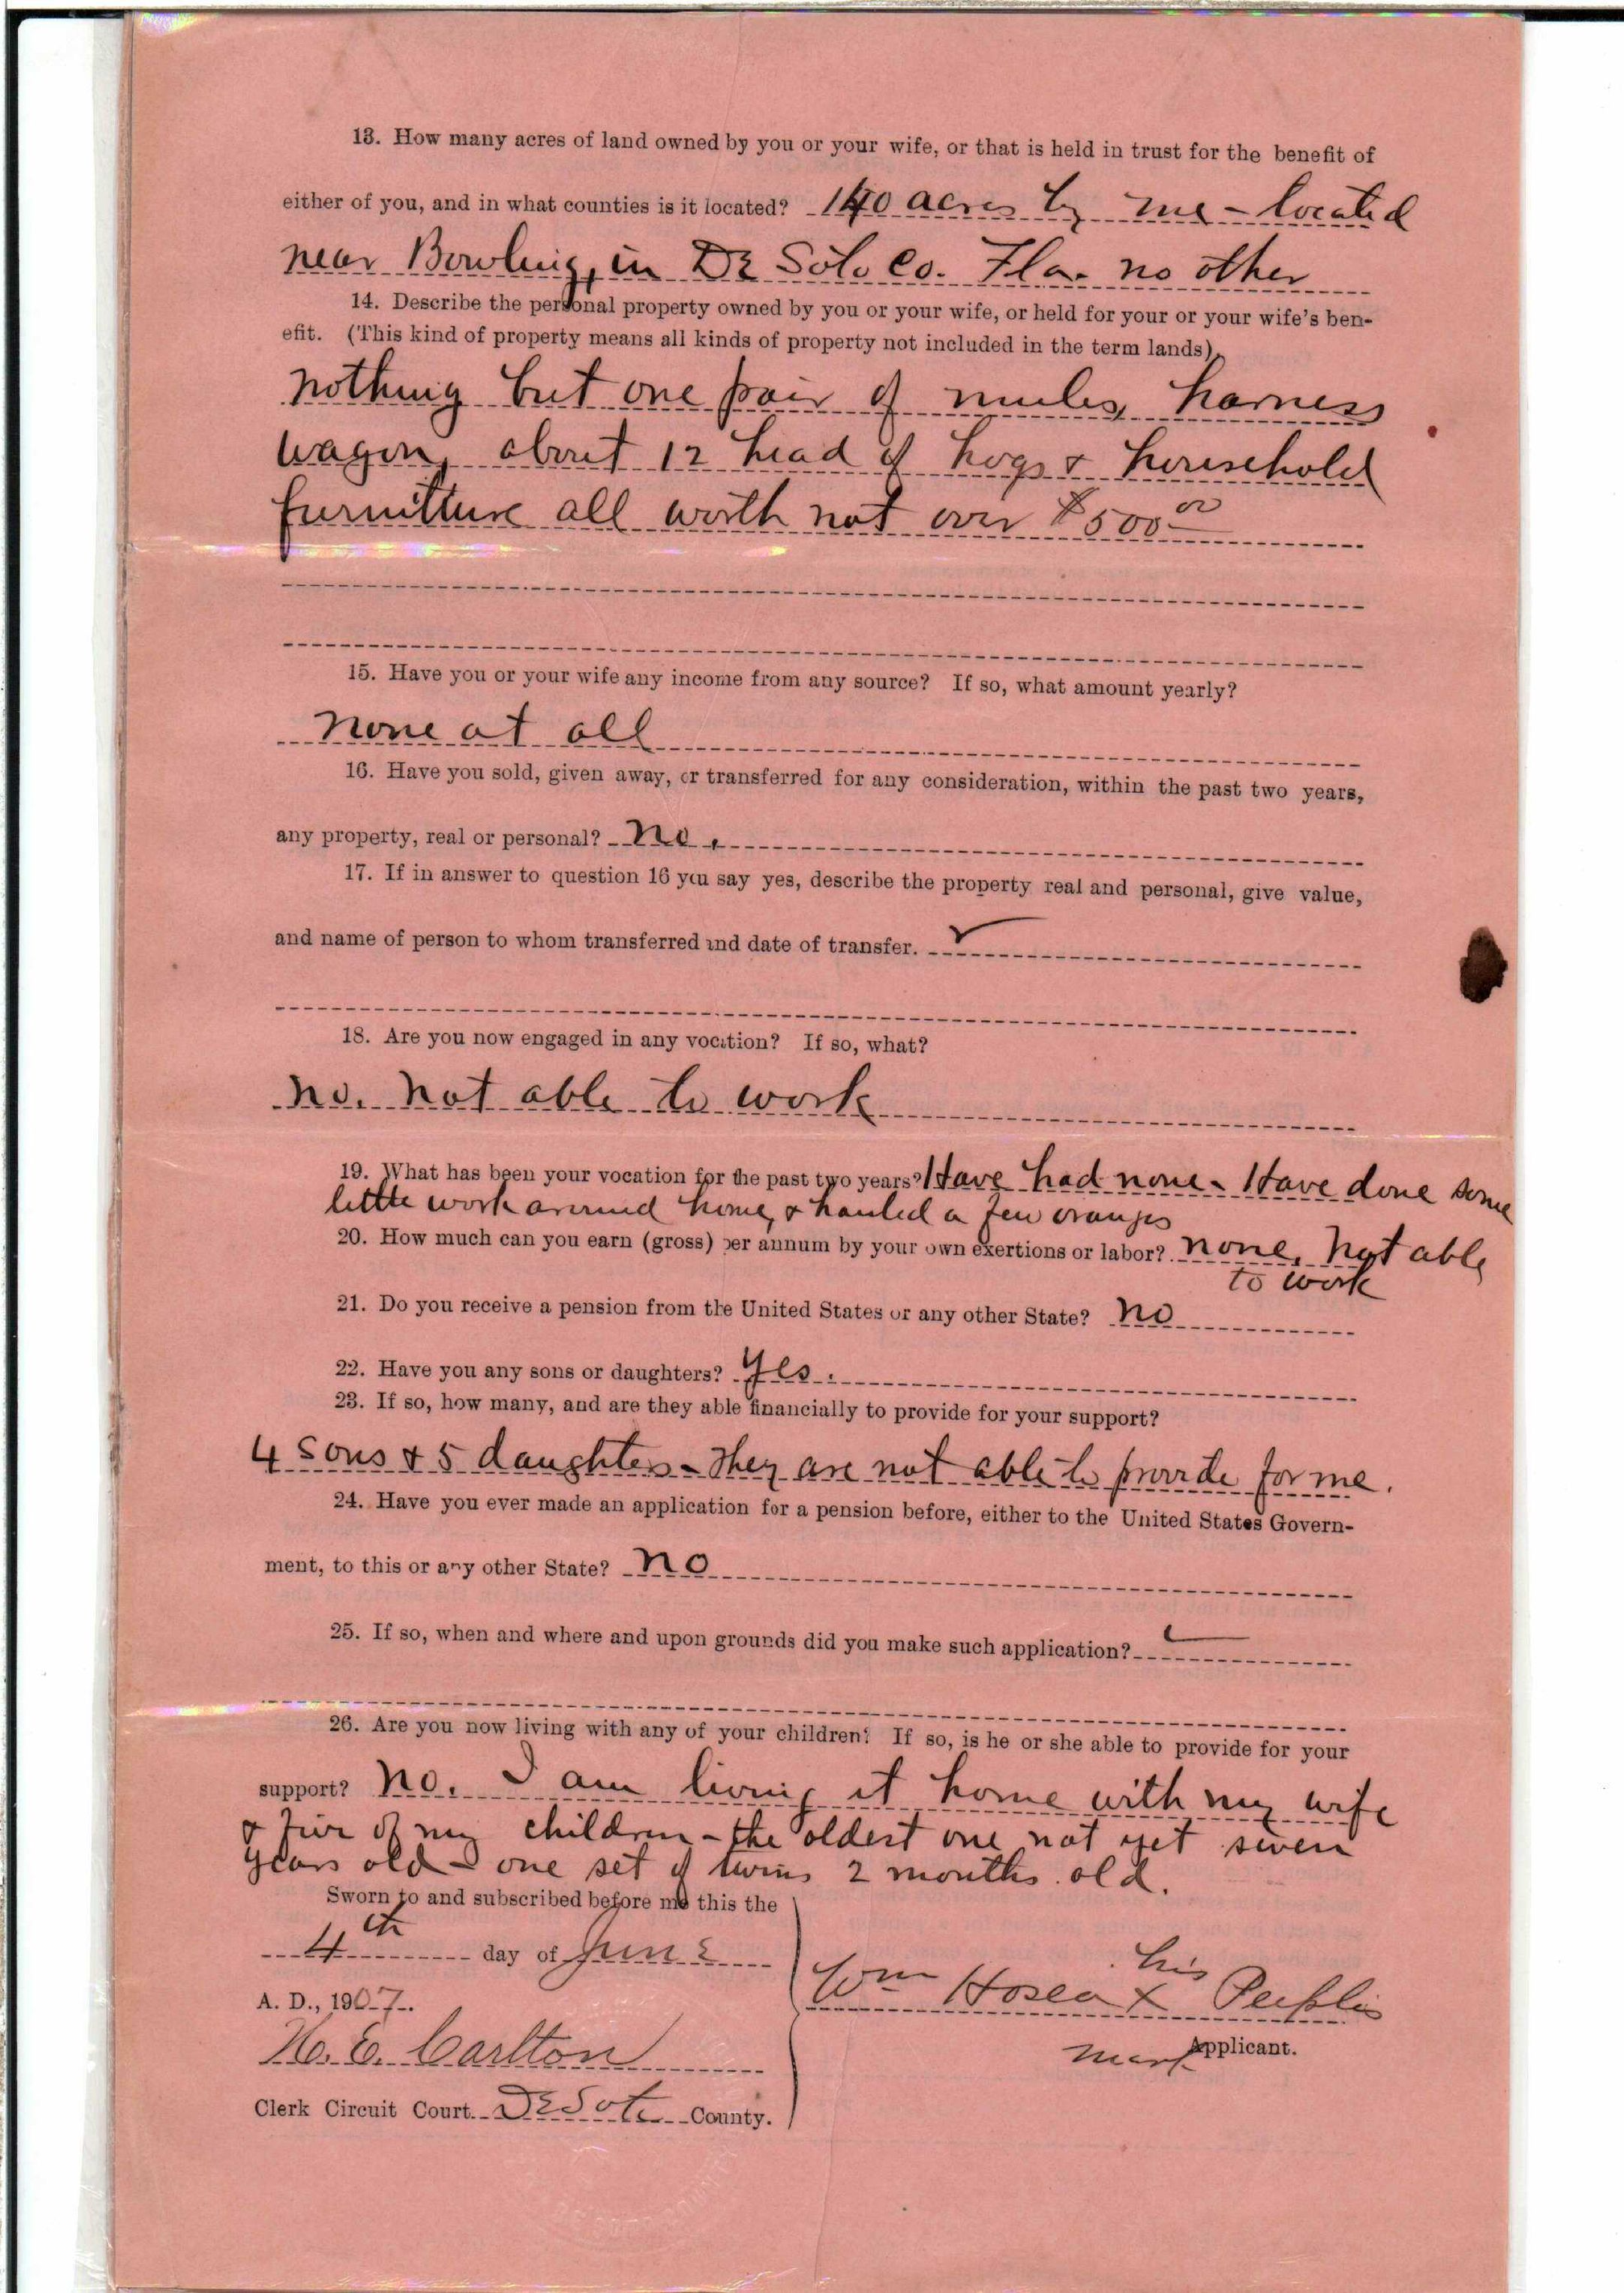 13. How many acres of land owned by you or your wife, or that is held in trust for the benefit of
either of you, and in what counties is it located? 140 acres by me - located
near Bowling, in De Soto Co. Fla. no other
14. Describe the personal property owned by you or your wife, or held for your or your wife's ben-
efit. (This kind of property means all kinds of property not included in the term lands).
nothing but one pair of mules, harness
wagon, about 12 head of hogs & household
furnitture all worth not over $500 00
15. Have you or your wife any income from any source? If so, what amount yearly?
none at all
16. Have you sold, given away, or transferred for any consideration, within the past two years,
any property, real or personal? no.
17. If in answer to question 16 you say yes, describe the property real and personal, give value,
and name of person to whom transferred and date of transfer. ✓
18. Are you now engaged in any vocation? If so, what?
no. not able to work
19. What has been your vocation for the past two years? Have had none - Have done some
little work around home, & hauled a few oranges
20. How much can you earn (gross) per annum by your own exertions or labor? none, not able
to work
21. Do you receive a pension from the United States or any other State? no
22. Have you any sons or daughters? yes.
23. If so, how many, and are they able financially to provide for your support?
4 sons & 5 daughters - They are not able to provide for me.
24. Have you ever made an application for a pension before, either to the United States Govern-
ment, to this or any other State? no
25. If so, when and where and upon grounds did you make such application?
26. Are you now living with any of your children? If so, is he or she able to provide for your
support? no. I am living at home with my wife
& five of my children - the oldest one not yet seven
years old - one set of twins 2 months old.
Sworn to and subscribed before me this the
4th day of June
A. D., 1907.
his
Wm Hosea X Peeples
mark Applicant.
H. E. Carlton
Clerk Circuit Court DeSoto County.